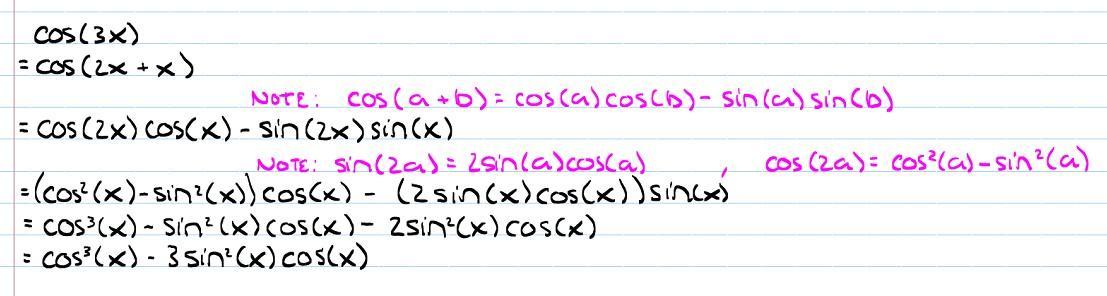 cos(3x)
= cos(2x + x)
NOTE: cos(a+b) = cos(a)cos(b) - sin(a)sin(b)
= cos(2x)cos(x) - sin(2x)sin(x)
NOTE: sin(2a) = 2sin(a)cos(a) , cos(2a) = cos²(a) - sin²(a)
= (cos²(x) - sin²(x))cos(x) - (2sin(x)cos(x))sin(x)
= cos³(x) - sin²(x)cos(x) - 2sin²(x)cos(x)
= cos³(x) - 3sin²(x)cos(x)